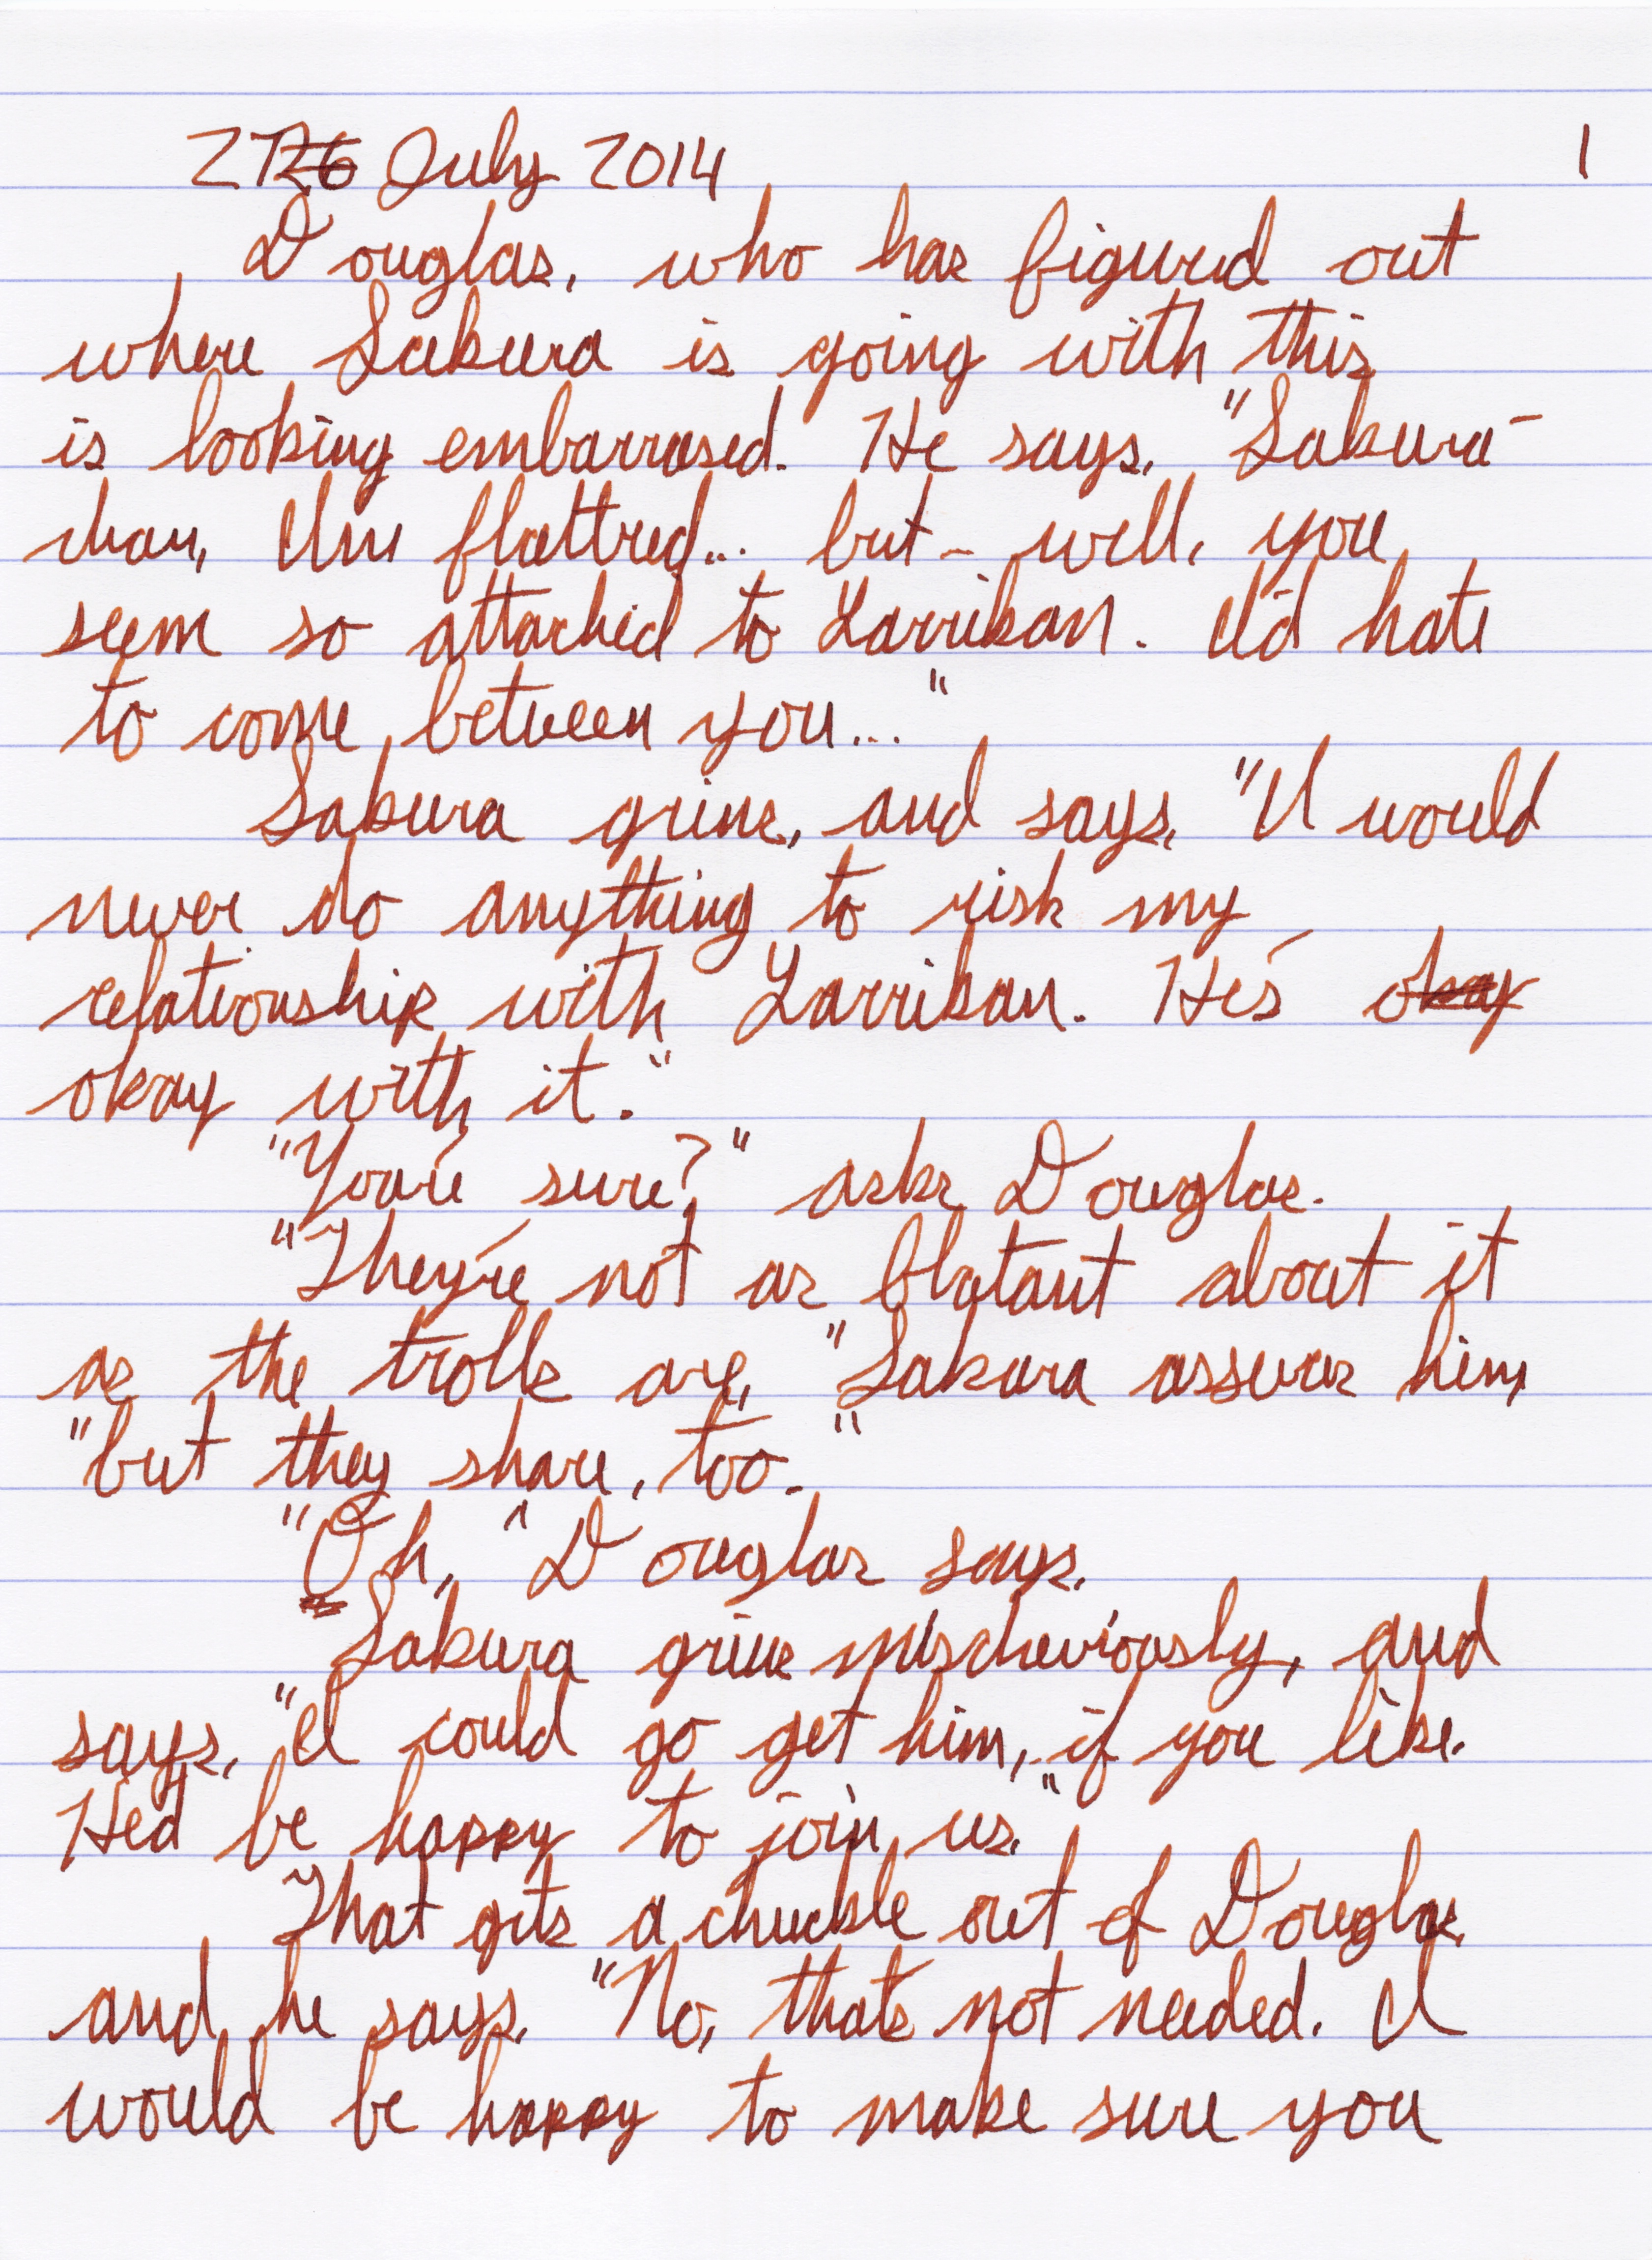 27 26 July 2014 1
Douglas, who has figured out
where Sakura is going with this
is looking embarrased. He says, "Sakura-
chan, I'm flattred... but - well, you
seem so attached to Larrikan. I'd hate
to come between you..."
Sakura grins, and says, "I would
never do anything to risk my
relationship with Larrikan. He's okay
okay with it."
"You're sure?" asks Douglas.
"They're not as blatant about it
as the trolls are," Sakura assures him,
"but they share, too."
"Oh," Douglas says.
Sakura grins mischeviously, and
says, "I could go get him, if you like.
He'd be happy to join us."
That gets a chuckle out of Douglas,
and he says, "No, that's not needed. I
would be happy to make sure you